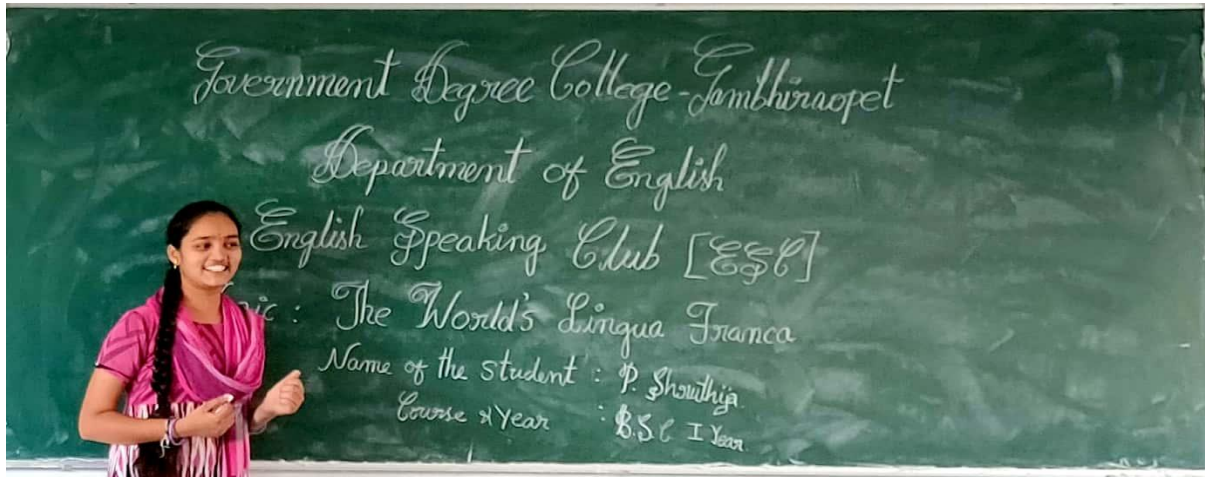 Government Degree College-Gambhiraopet
Department of English
English Speaking Club [ESC]
pic : The World's Lingua Franca
Name of the student : P. Shruthija
Course & Year : B.SC I Year